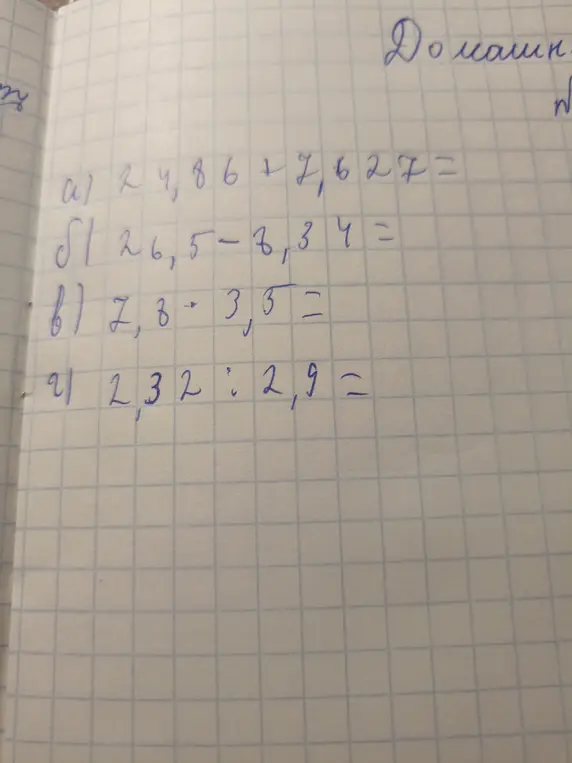 Домашн
а) 24,86 + 7,627 =
б) 26,5 - 8,34 =
в) 7,8 · 3,5 =
г) 2,32 : 2,9 =